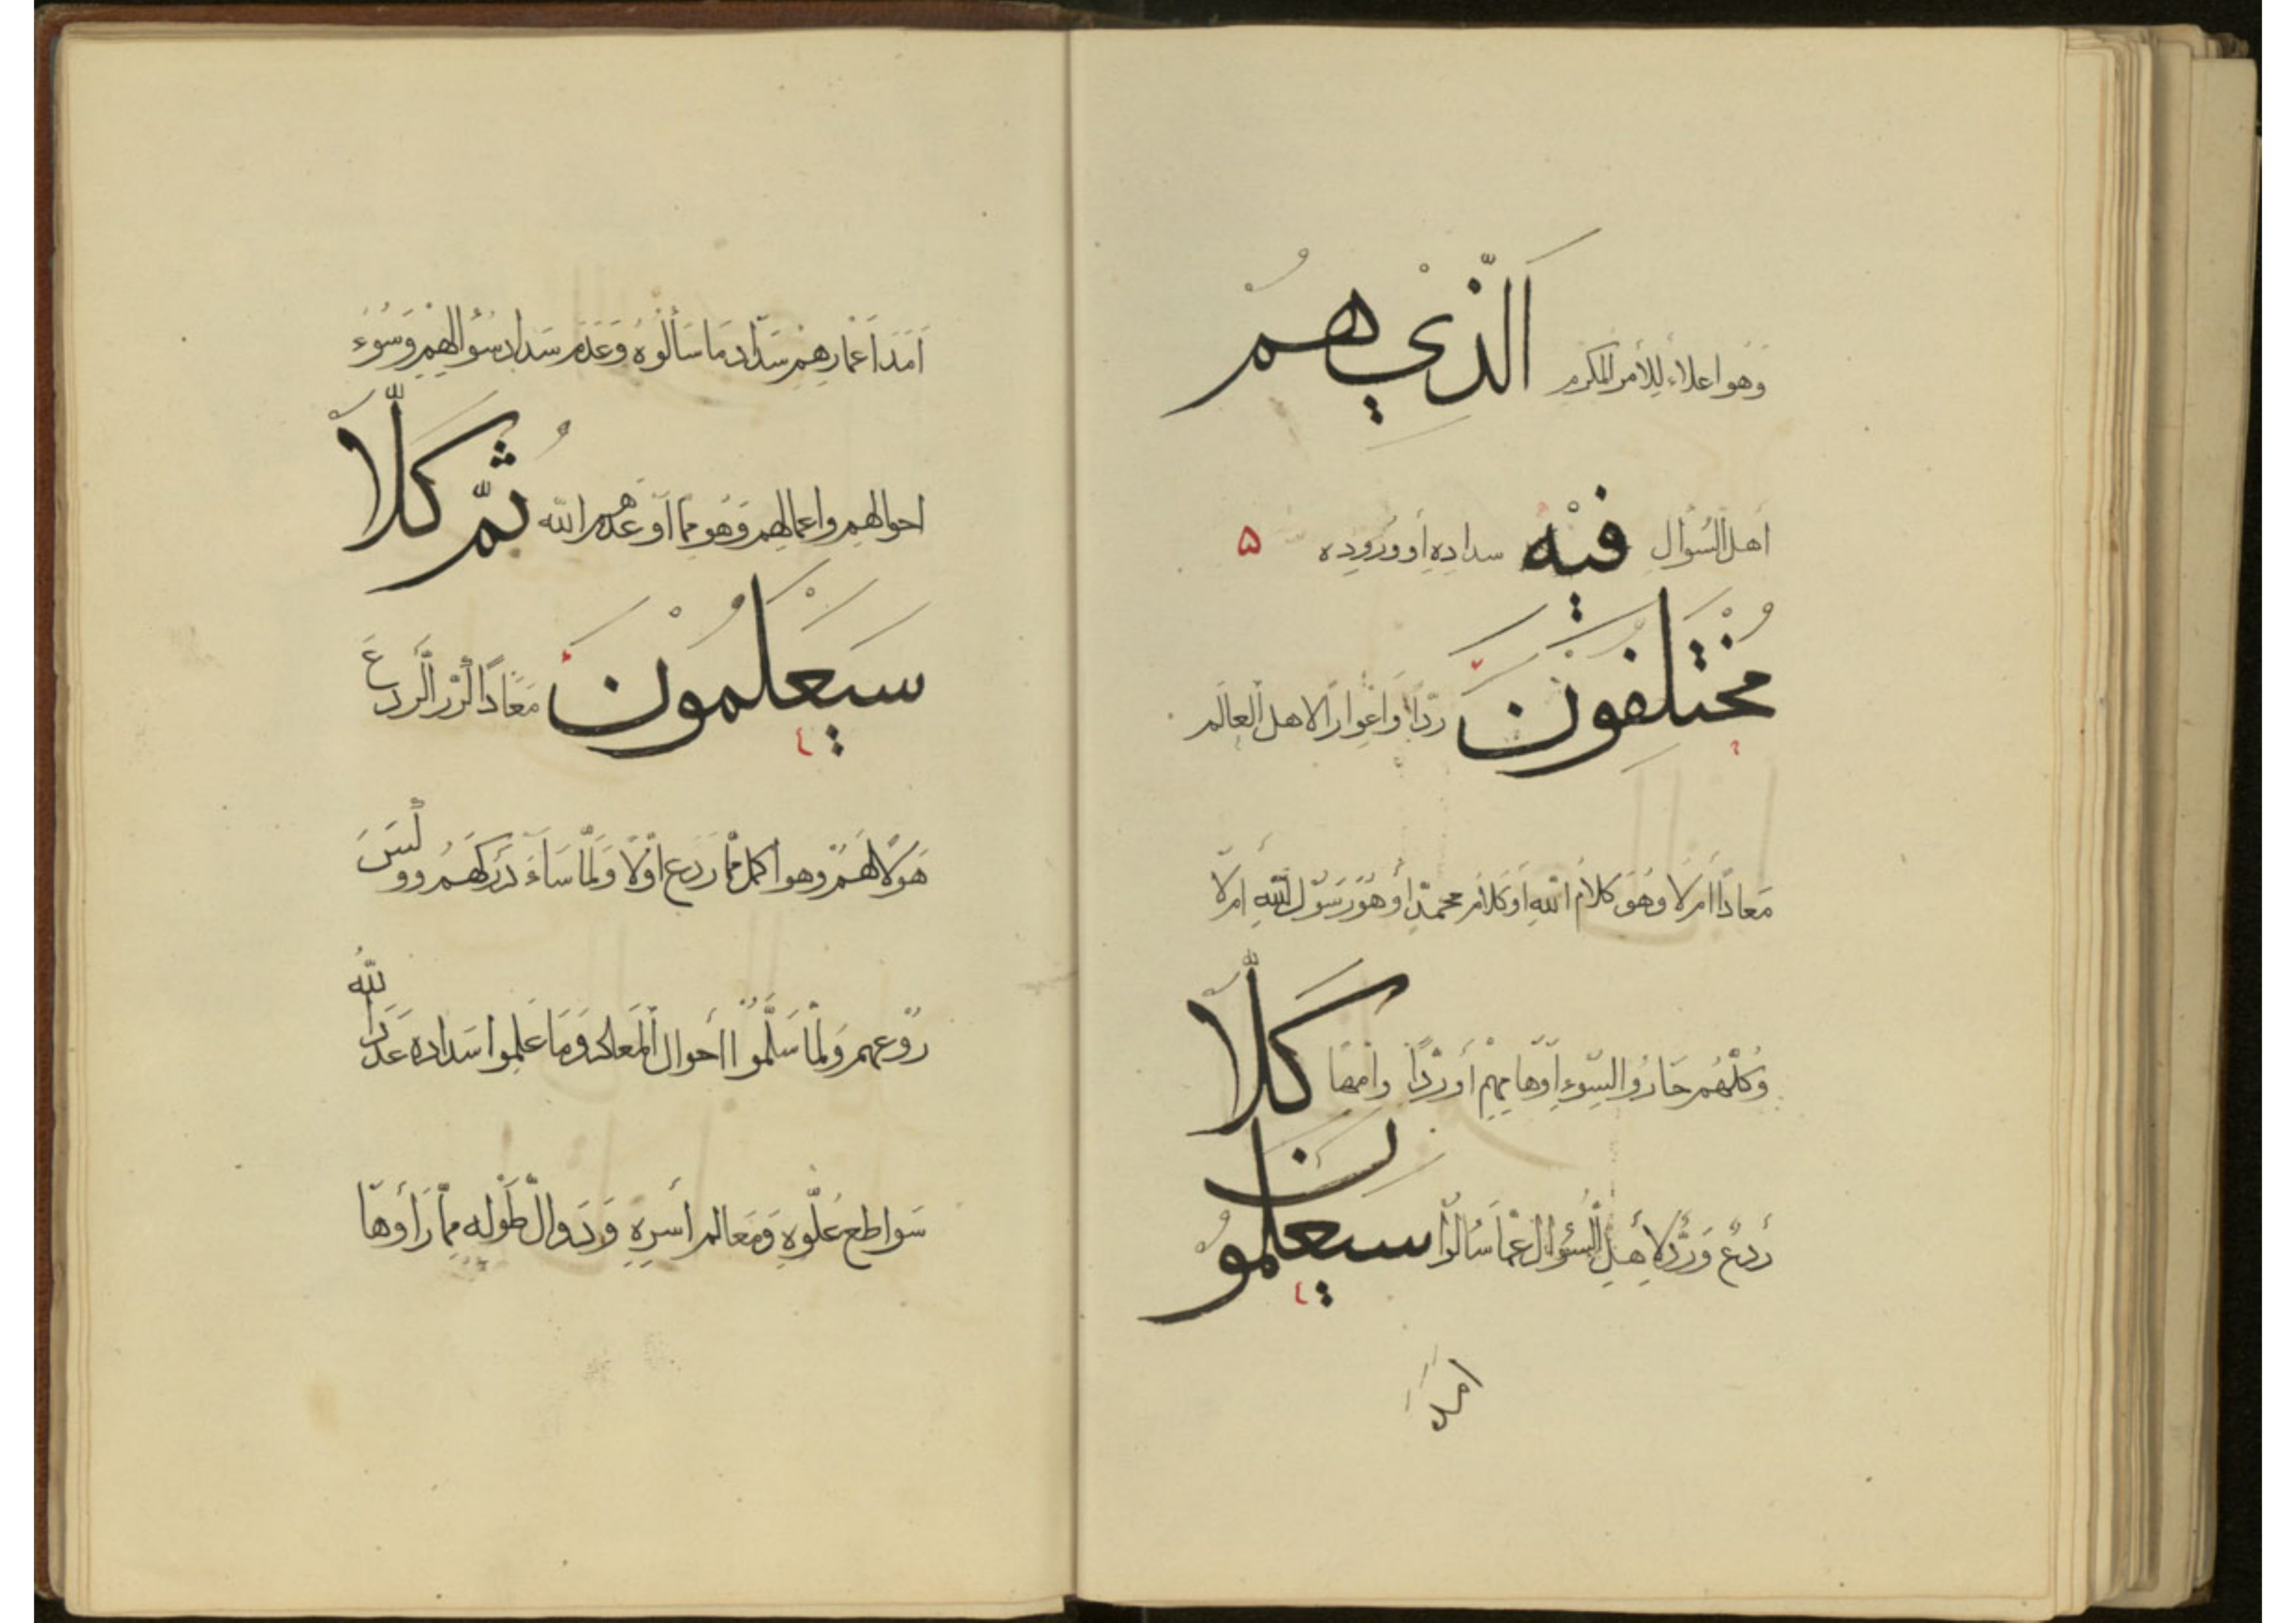 وهو اعلاء للأمر المكرم الَّذِي هُمْ
أهل السُّؤال فِيْهِ سداده أو وروده ۵
مُخْتَلِفُونَ ردّا واعوارا لاهل العالم
مَعادًا أمر لا وهو كلام الله أو كلام محمد أو هو رسول الله أم لا
وكلهم حاروا السوء أوهامهم أو ردّا وامها كَلَّا
ردع وردّ لاهل السؤال عما سألوا سَيَعْلَمُونَ
امد
اَمَدَ اَعْمارِهِمْ سَدَادَ مَا سَأَلُوْهُ وَعَدَمَ سَدَادِ سُؤَالِهِمْ وَسُوْءَ
احوالهم واعمالهم وهو مما أوعدهم الله ثُمَّ كَلَّا
سَيَعْلَمُوْنَ مَعَادًا كرر الردع
هَوْلًا لَهُمْ وهو اكمل مما ردع اوّلا ولَمَّا سَاءَ دركهم ووكس
روعهم ولَمَّا سَلَّمُوا احوال المعاد وما علموا سداده عدد الله
سواطع علوّه ومعالم أسره ودوالّ طوله مما رأوها